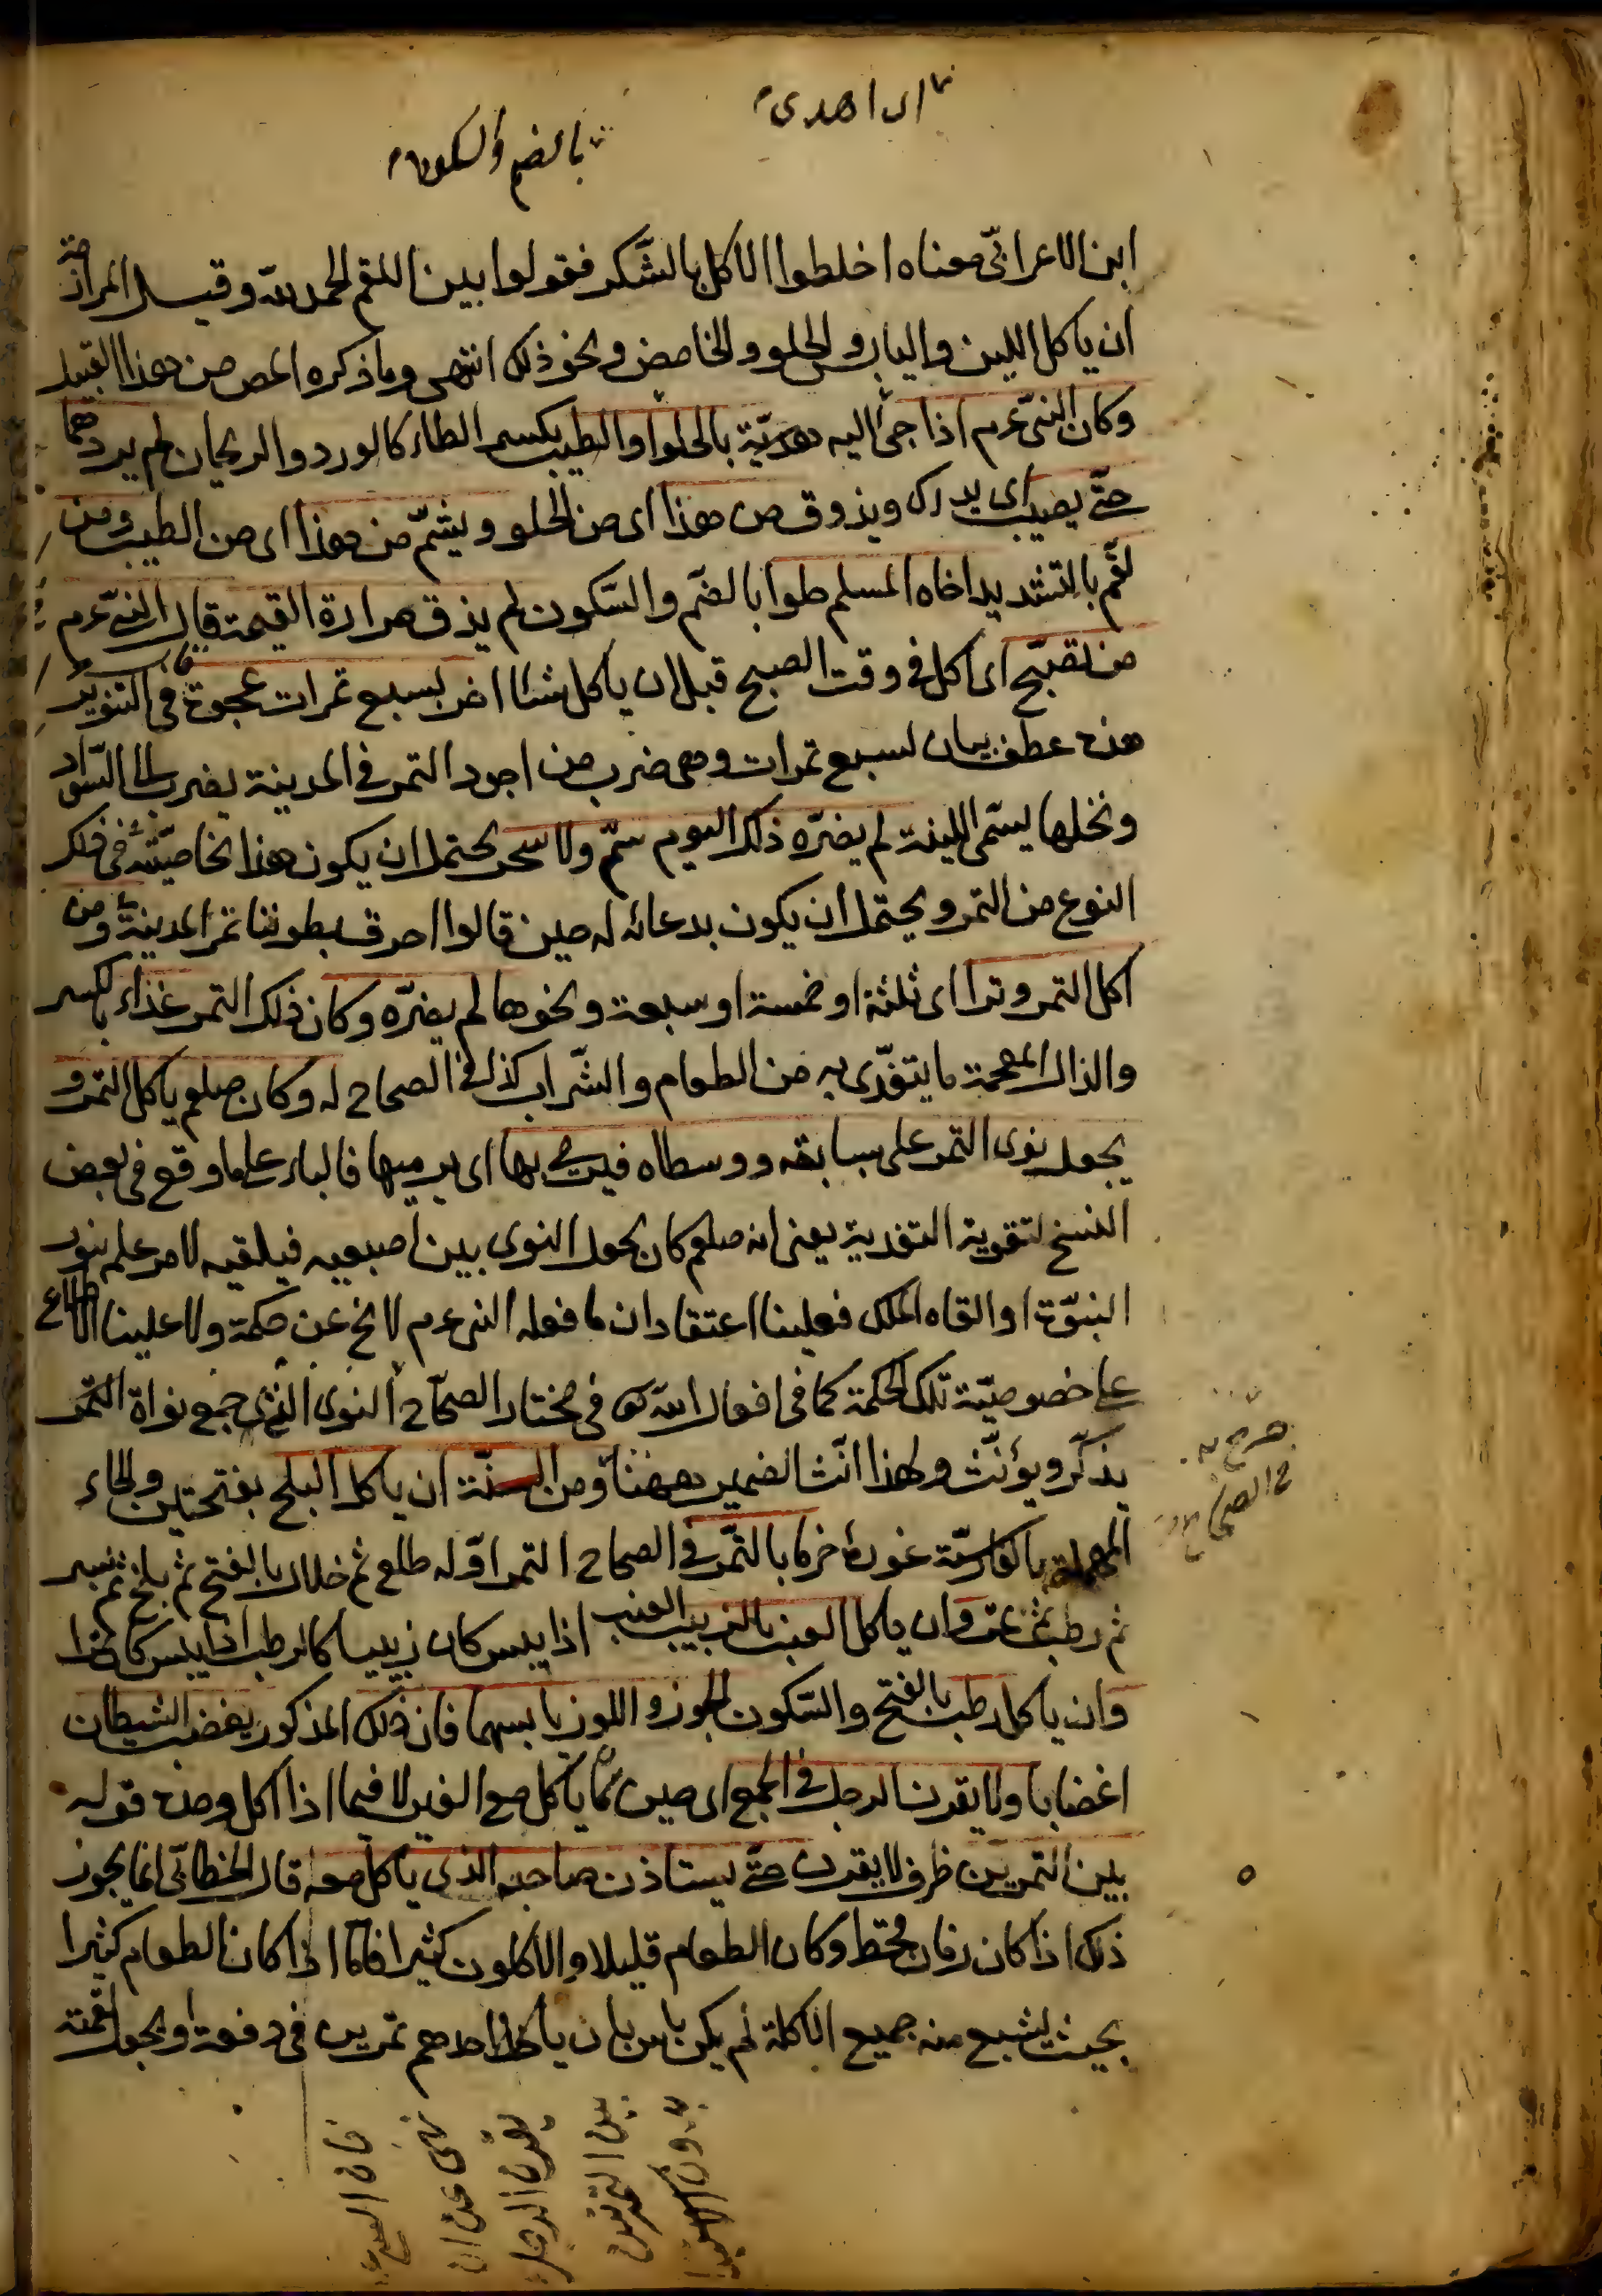 ای اهدی
بالضم والسکون
ابن الاعرابیّ معناه اخلطوا الاکل بالشّکر فقولوا بین اللقم الحمد للّه وقیل المراد منه
ان یاکل اللین والیابس والحلو والحامض ونحو ذلک انتهی وما ذکره المص من هذا القبیل
وکان النبیّ عم اذا جئ الیه هدیّة بالحلوا والطیب بکسر الطاء کالورد والریحان لم یردهما
حتّی یصیب ای یدرک ویذوق من هذا ای من الحلو ویشمّ من هذا ای من الطیب ومن
لقّم بالتشدید اخاه المسلم حلوا بالضم والسّکون لم یذق مرارة القیمة قال النبیّ عم
من تصبّح ای اکل فی وقت الصبح قبل ان یاکل شئا اخر بسبع تمرات عجوة فی التنویر
هذه عطف بیان لسبع تمرات وهی ضرب من اجود التمر فی المدینة یضرب الی السّواد
ونخلها یسمّی اللینة لم یضرّه ذلک الیوم سمّ ولا سحر یحتمل ان یکون هذا بخاصیّة فی ذلک
النوع من التمر ویحتمل ان یکون بدعائه له حین قالوا احرق بطوننا تمر المدینة ومن
اکل التمر وترا ای ثلثة او خمسة او سبعة ونحوها لم یضرّه وکان ذلک التمر غذاء بالکسر
والذال المعجمة ما یتغذّی به من الطعام والشّراب کذا فی الصحاح له وکان صلعم یاکل التمر و
یجعل نوی التمر علی سبابته ووسطاه فیرمی بها ای یرمیها فالباء علی ما وقع فی بعض
النسخ لتقویة التعدیة یعنی انه صلعم کان یجعل النوی بین اصبعیه فیلقیه لامر علم بنور
النبوّة او القاه الملک فعلینا اعتقاد ان ما فعله النبی عم لا یخ عن حکمة ولا علینا الاطلاع
علی خصوصیّة تلک الحکمة کما فی افعال اللّه تع فی مختار الصحاح النوی الذی جمع نواة التمر
یذکّر ویؤنّث ولهذا انّث الضمیر ههنا ومن السنّة ان یاکل البلح بفتحتین والحاء
المهملة بالفارسیّة غورۀ خرما بالتّمر فی الصحاح التمر اوّله طلع ثم خلال بالفتح ثم بلح ثم بسر
ثم رطب ثم تمر وان یاکل العنب بالزبیب العنب اذا یبس کان زبیبا کالرطب اذا یبس کان تمرا
وان یاکل رطب بالفتح والسّکون الجوز واللوز بیابسهما فان ذلک المذکور یغضب الشیطان
اغضابا ولا یقرن الرجل فی الجمع ای حین ما یاکل مع الغیر لا فیما اذا اکل وحده قوله
بین التمرین ظرف لا یقرن حتّی یستاذن صاحبه الذی یاکل معه قال الخطابیّ انما یجوز
ذلک اذا کان زمان قحط وکان الطعام قلیلا والاکلون کثیرا فامّا اذا کان الطعام کثیرا
بحیث یشبع منه جمیع الاکلة لم یکن باس بان یاکل احدهم تمرین فی دفعة او یجعل لقمته
صرّح به
فی الصحاح
نهی عن ان
یقرن الرجل
بین التمرتین